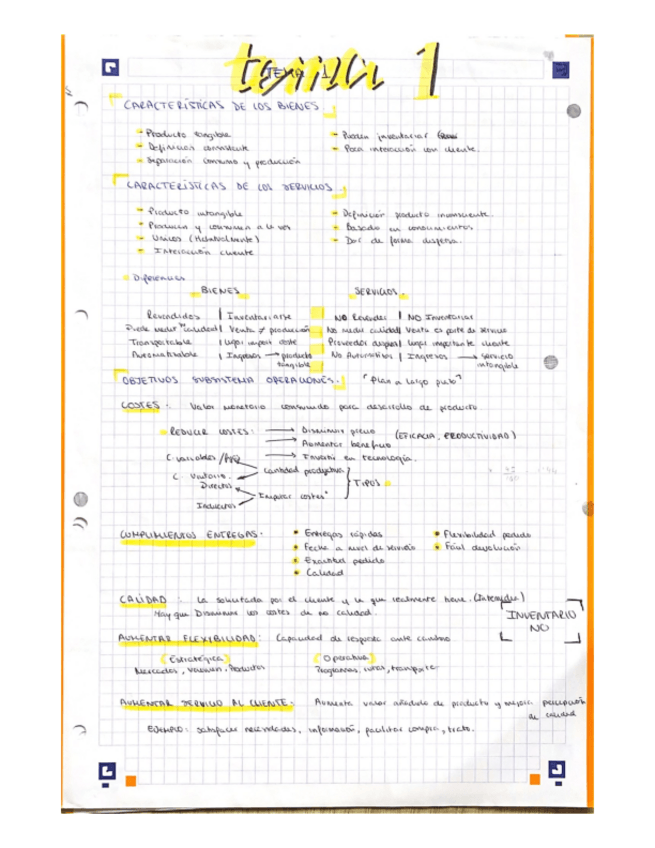 tema 1
TEMA 1
CARACTERÍSTICAS DE LOS BIENES
- Producto tangible
- Pueden inventariar
- Definición consistente
- Poca interacción con cliente.
- Separación consumo y producción
CARACTERÍSTICAS DE LOS SERVICIOS
- Producto intangible
- Definición producto inconsistente.
- Producen y consumen a la vez
- Basado en conocimientos
- Únicos (Habitualmente)
- Dar de forma dispersa.
- Interacción cliente
Diferencias
BIENES
SERVICIOS.
Revendidos | Inventariarse
NO Revender | NO Inventariar
Puede medir calidad | Venta ≠ producción
No medir calidad | Venta es parte de servicio
Transportable | lugar import coste
Proveedor | lugar importante cliente
Automatizable | Ingresos → producto tangible
No | Ingresos → servicio intangible
OBJETIVOS SUBSISTEMA OPERACIONES. "Plan a largo plazo"
COSTES: Valor monetario consumido para desarrollo de producto
REDUCIR COSTES: → Disminuir precio
→ Aumentar beneficio
(EFICACIA, PRODUCTIVIDAD)
→ Invertir en tecnología.
C. variables /
Cantidad productiva
C. Unitario.
TIPOS
Directos
Imputar costes
Indirectos
CUMPLIMIENTOS ENTREGAS:
• Entregas rápidas
• Flexibilidad pedido
• Fecha a nivel de servicio
• Fácil devolución
• Exactitud pedido
• Calidad
CALIDAD: La solicitada por el cliente y la que realmente tiene.
Hay que Disminuir los costes de no calidad.
INVENTARIO
NO
AUMENTAR FLEXIBILIDAD: Capacidad de respuesta ante cambio
(Estratégica)
(Operativa)
Mercados, volumen, Productos
Programas, rutas, transporte
AUMENTAR SERVICIO AL CLIENTE: Aumenta valor añadido de producto y mejora percepción
de calidad
EJEMPLO: satisfacer necesidades, información, facilitar compra, trato.